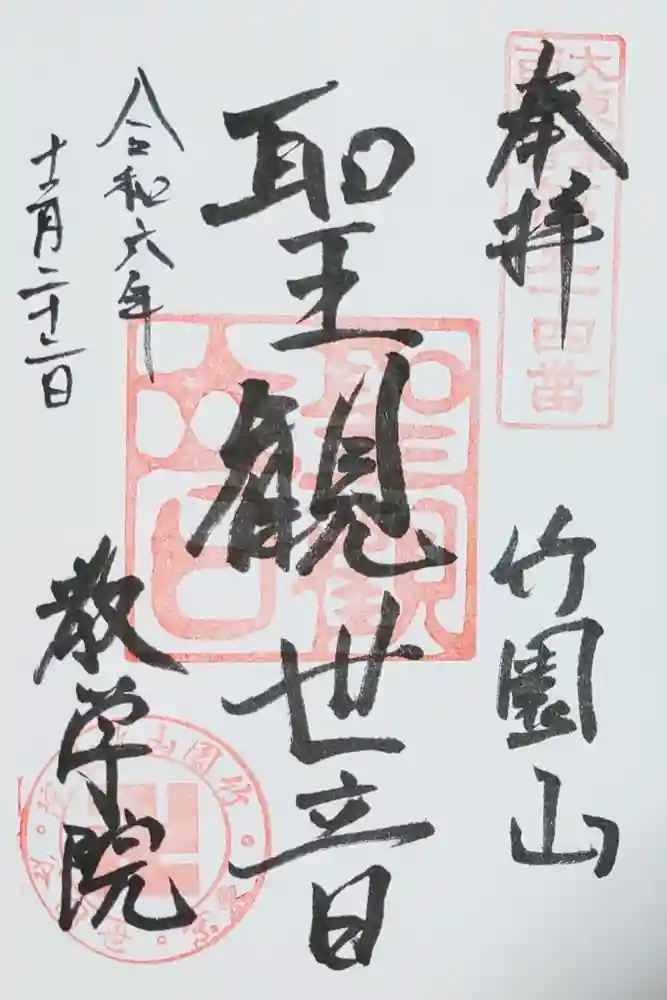 奉拝
竹園山
聖観世音
令和六年
十二月二十二日
教学院